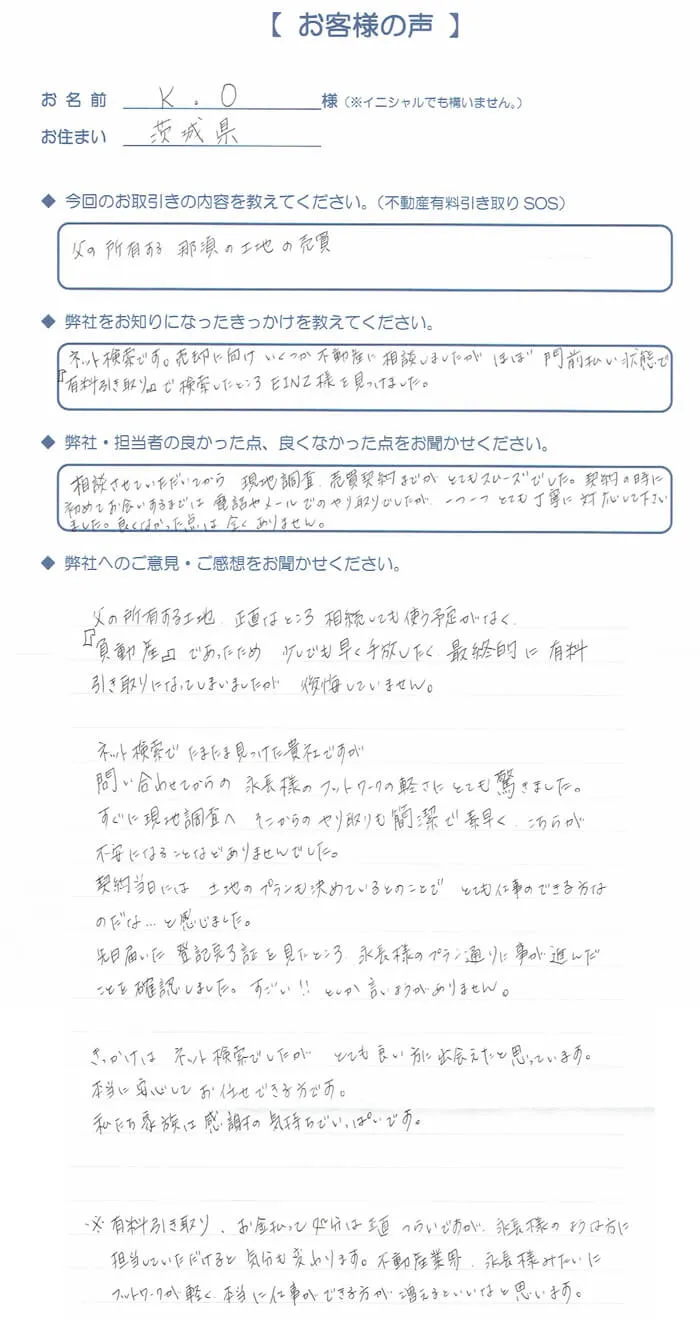 【 お客様の声 】
お名前 K.O 様(※イニシャルでも構いません。)
お住まい 茨城県
◆ 今回のお取引きの内容を教えてください。(不動産有料引き取りSOS)
父の所有する 那須の土地の売買
◆ 弊社をお知りになったきっかけを教えてください。
ネット検索です。売却に向け いくつか不動産に相談しましたが ほぼ 門前払い状態で
『有料引き取り』で検索したところ EINZ様を見つけました。
◆ 弊社・担当者の良かった点、良くなかった点をお聞かせください。
相談させていただいてから 現地調査、売買契約までが とてもスムーズでした。契約の時に
初めてお会いするまでは 電話やメールでのやり取りでしたが、一つ一つ とても丁寧に対応して下さい
ました。良くなかった点は全くありません。
◆ 弊社へのご意見・ご感想をお聞かせください。
父の所有する土地、正直なところ 相続しても使う予定がなく、
『負動産』であったため 少しでも早く手放したく、最終的に 有料
引き取りになってしまいましたが 後悔していません。
ネット検索で たまたま見つけた貴社ですが
問い合わせてからの 永長様のフットワークの軽さに とても驚きました。
すぐに現地調査へ そこからのやり取りも簡潔で素早く、こちらが
不安になることなどありませんでした。
契約当日には 土地のプランも決めているとのことで とても仕事のできる方な
のだな…と感じました。
先日届いた 登記完了証を見たところ、永長様のプラン通りに事が進んだ
ことを確認しました。すごい!! としか言いようがありません。
きっかけは ネット検索でしたが とても良い方に出会えたと思っています。
本当に安心して お任せできる方です。
私たち家族は感謝の気持ちでいっぱいです。
※ 有料引き取り、お金払って処分は正直 つらいですが、永長様のような方に
担当していただけると 気分も変わります。不動産業界、永長様みたいに
フットワークが軽く、本当に仕事ができる方が 増えるといいなと思います。